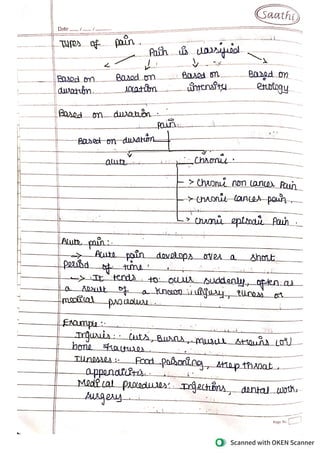 Saathi
Date __/__/__
Types of pain.
Pain is classified
Based on Based on Based on Based on
duration location intensity etiology
Based on duration.
Pain
Based on duration
acute chronic.
-> chronic non cancer Pain
-> chronic cancer pain.
-> chronic episodic Pain.
Acute pain:-
-> Acute pain develops over a short
period of time.
-> It tends to occur suddenly, often as
a result of a known injury, illness or
medical procedure.
Example:-
Injuries:- cuts, Burns, muscle strains (or)
bone fractures
Illnesses:- Food poisoning, strep throat,
appendicitis.
Medical procedures: Injections, dental work,
surgery.
Page No.
Scanned with OKEN Scanner